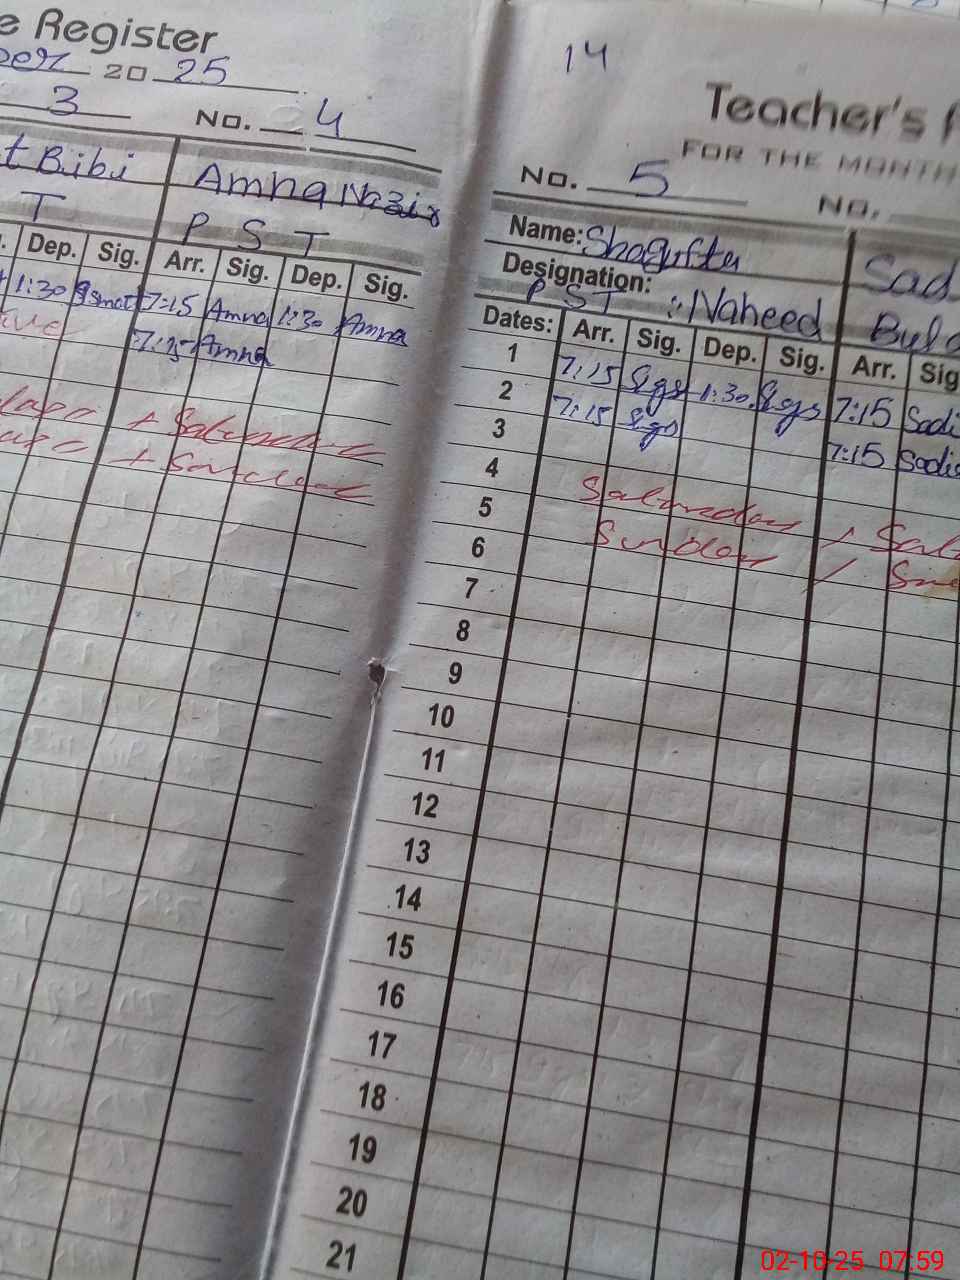 e Register
ber 20 25
3 No. 4
t Bibi Amna Nazir
T P S T
Dep. Sig. Arr. Sig. Dep. Sig.
1:30 Asmat 7:15 Amna 1:30 Amna
ave 7:15 Amna
+ Saturday
+ Sunday
14
Teacher's
FOR THE MONTH
No. 5 No.
Name: Shagufta Sad
Designation:
P S T Naheed
Dates: Arr. Sig. Dep. Sig. Arr. Sig
1 7:15 1:30 7:15 Sadi
2 7:15 7:15 Sadi
3
4 Saturday
5 Sunday
6
7
8
9
10
11
12
13
14
15
16
17
18
19
20
21
02-10-25 07:59